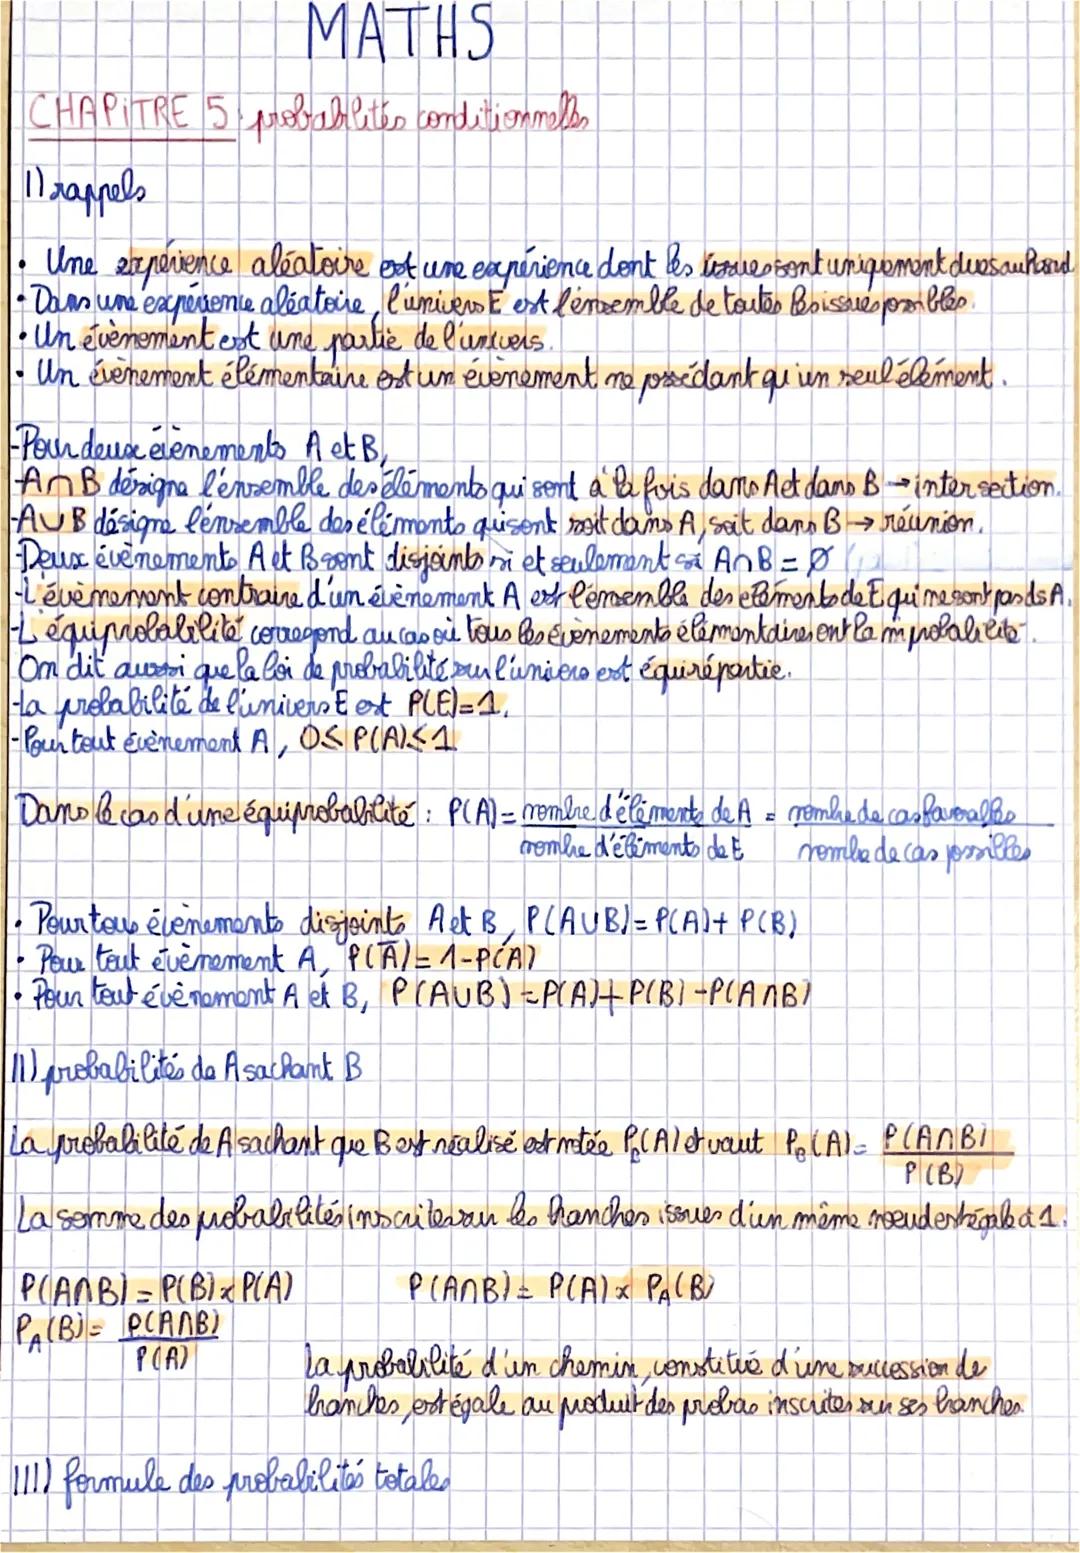 MATHS
CHAPITRE 5: probabilités conditionnelles
I) rappels
• Une expérience aléatoire est une expérience dont les issues sont uniquement dues au hasard
• Dans une expérience aléatoire, l'univers E est l'ensemble de toutes les issues possibles.
• Un évènement est une partie de l'univers.
• Un évènement élémentaire est un évènement ne possédant qu'un seul élément.
-Pour deux évènements A et B,
-A∩B désigne l'ensemble des éléments qui sont à la fois dans A et dans B → intersection.
-A∪B désigne l'ensemble des éléments qui sont soit dans A, soit dans B → réunion.
-Deux évènements A et B sont disjoints si et seulement si A∩B = Ø
-L'évènement contraire d'un évènement A est l'ensemble des éléments de E qui ne sont pas ds A.
-L'équiprobabilité correspond au cas où tous les évènements élémentaires ont la m probabilité.
On dit aussi que la loi de probabilité sur l'univers est équirépartie.
-La probabilité de l'univers E est P(E)=1.
-Pour tout évènement A, 0≤P(A)≤1
Dans le cas d'une équiprobabilité : P(A) = nombre d'éléments de A = nombre de cas favorables
nombre d'éléments de E nombre de cas possibles
• Pour tous évènements disjoints A et B, P(A∪B)= P(A)+ P(B)
• Pour tout évènement A, P(A̅)= 1-P(A)
• Pour tout évènement A et B, P(A∪B)=P(A)+P(B)-P(A∩B)
II) probabilités de A sachant B
La probabilité de A sachant que B est réalisé est notée P_B(A) et vaut P_B(A)= P(A∩B)
P(B)
La somme des probabilités inscrites sur les branches issues d'un même noeud est égale à 1.
P(A∩B) = P(B)×P(A) P(A∩B) = P(A) × P_A(B)
P_A(B)= P(A∩B)
P(A)
La probabilité d'un chemin, constitué d'une succession de
branches, est égale au produit des probas inscrites sur ses branches.
III) formule des probabilités totales